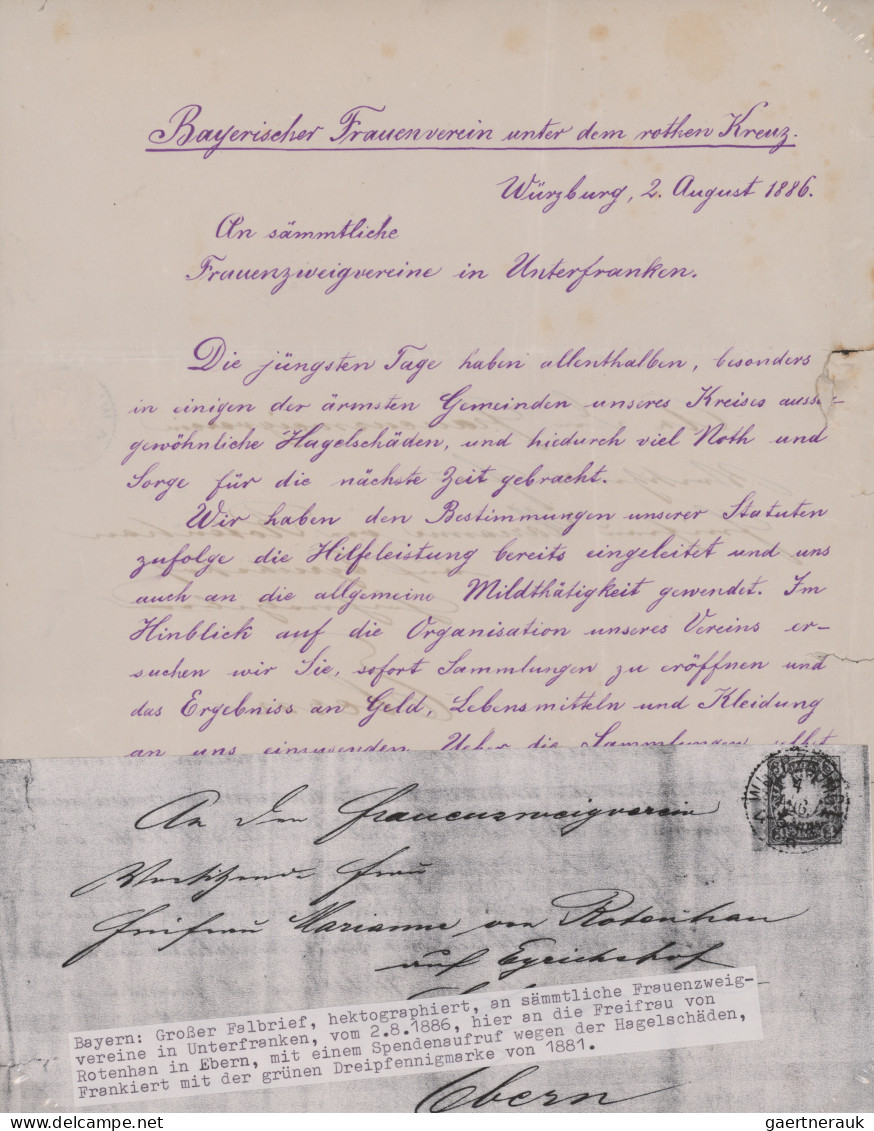 Bayerischer Frauenverein unter dem rothen Kreuz.
Würzburg, 2. August 1886.
An sämmtliche
Frauenzweigvereine in Unterfranken.
Die jüngsten Tage haben allenthalben, besonders
in einigen der ärmsten Gemeinden unseres Kreises ausse-
gewöhnliche Hagelschäden, und hiedurch viel Noth und
Sorge für die nächste Zeit gebracht.
Wir haben den Bestimmungen unserer Statuten
zufolge die Hilfeleistung bereits eingeleitet und uns
auch an die allgemeine Mildthätigkeit gewendet. Im
Hinblick auf die Organisation unseres Vereins er-
suchen wir Sie, sofort Sammlungen zu eröffnen und
das Ergebniss an Geld, Lebensmitteln und Kleidung
an uns einzusenden. Ueber die Sammlungen selbst
An den Frauenzweigverein
Vorsitzende Frau
Freifrau Marianne von Rotenhan
auf Eyrichshof
Bayern: Großer Falbrief, hektographiert, an sämmtliche Frauenzweig-
vereine in Unterfranken, vom 2.8.1886, hier an die Freifrau von
Rotenhan in Ebern, mit einem Spendenaufruf wegen der Hagelschäden,
Frankiert mit der grünen Dreipfennigmarke von 1881.
Ebern
gaertnerauk